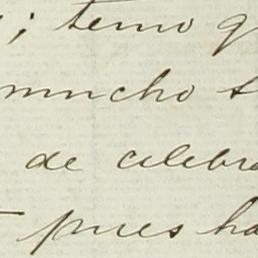 ; temo q
mucho t
de celebra
pues ha